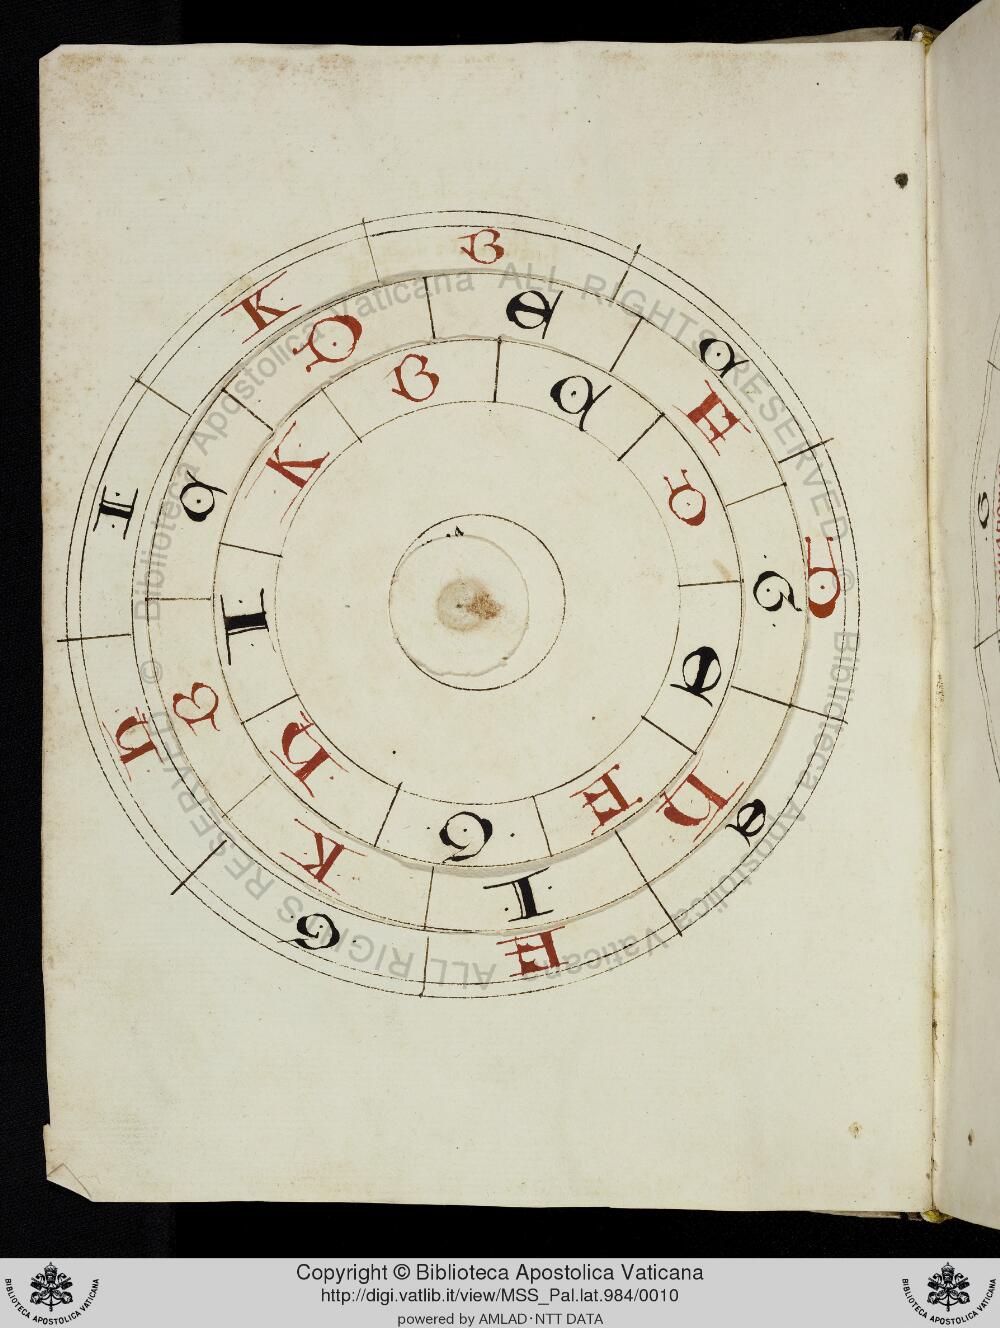 B C D E F G H I K
E F G H I K B C D
B C D E F G H I K
ALL RIGHTS RESERVED © Biblioteca Apostolica Vaticana
ALL RIGHTS RESERVED © Biblioteca Apostolica Vaticana
BIBLIOTECA APOSTOLICA VATICANA
Copyright © Biblioteca Apostolica Vaticana
http://digi.vatlib.it/view/MSS_Pal.lat.984/0010
powered by AMLAD·NTT DATA
BIBLIOTECA APOSTOLICA VATICANA